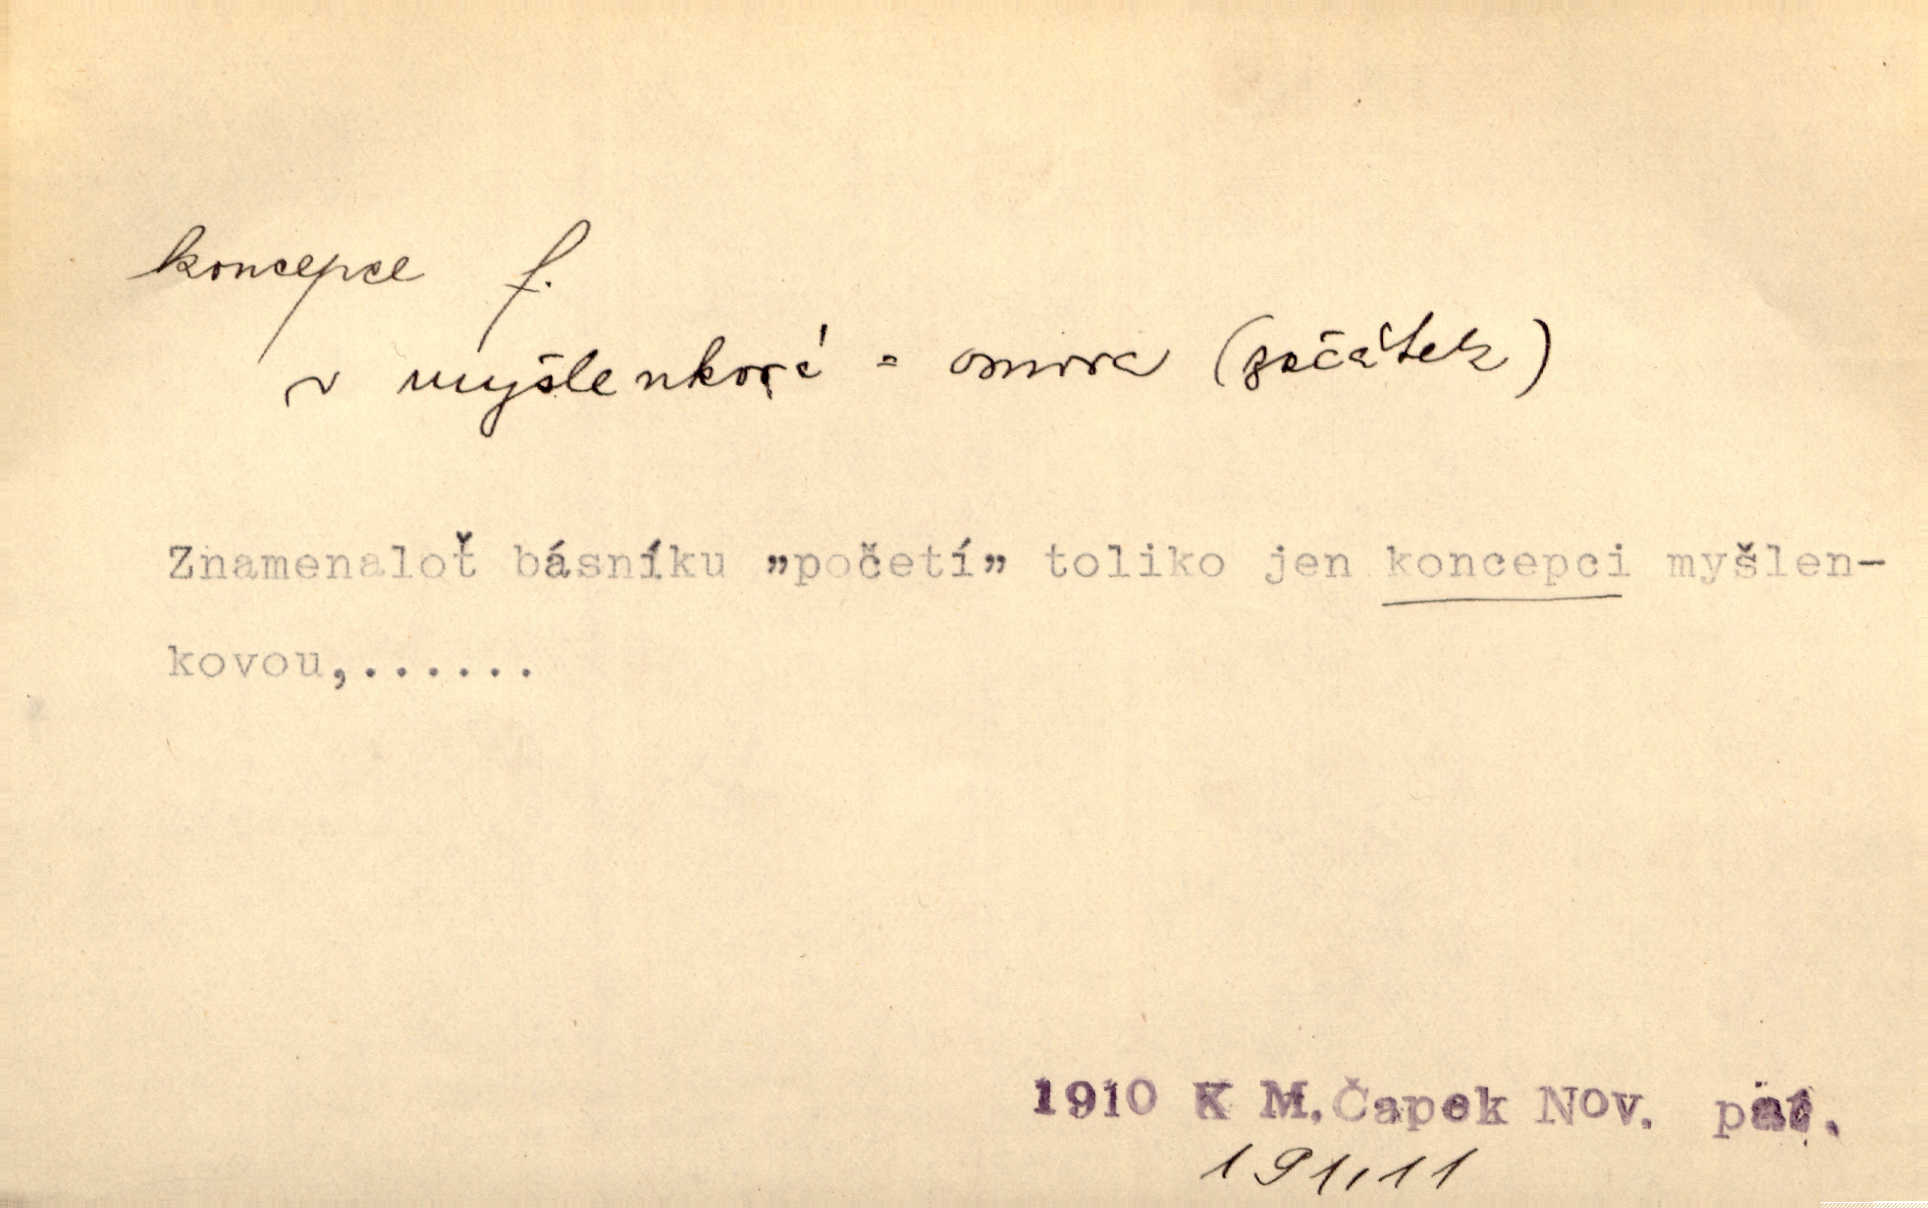 koncepce f.
v myšlenková = osnova (počátek)
Znamenaloť básníku „početí„ toliko jen koncepci myšlen-
kovou,......
1910 K M.Čapek Nov.
191,11